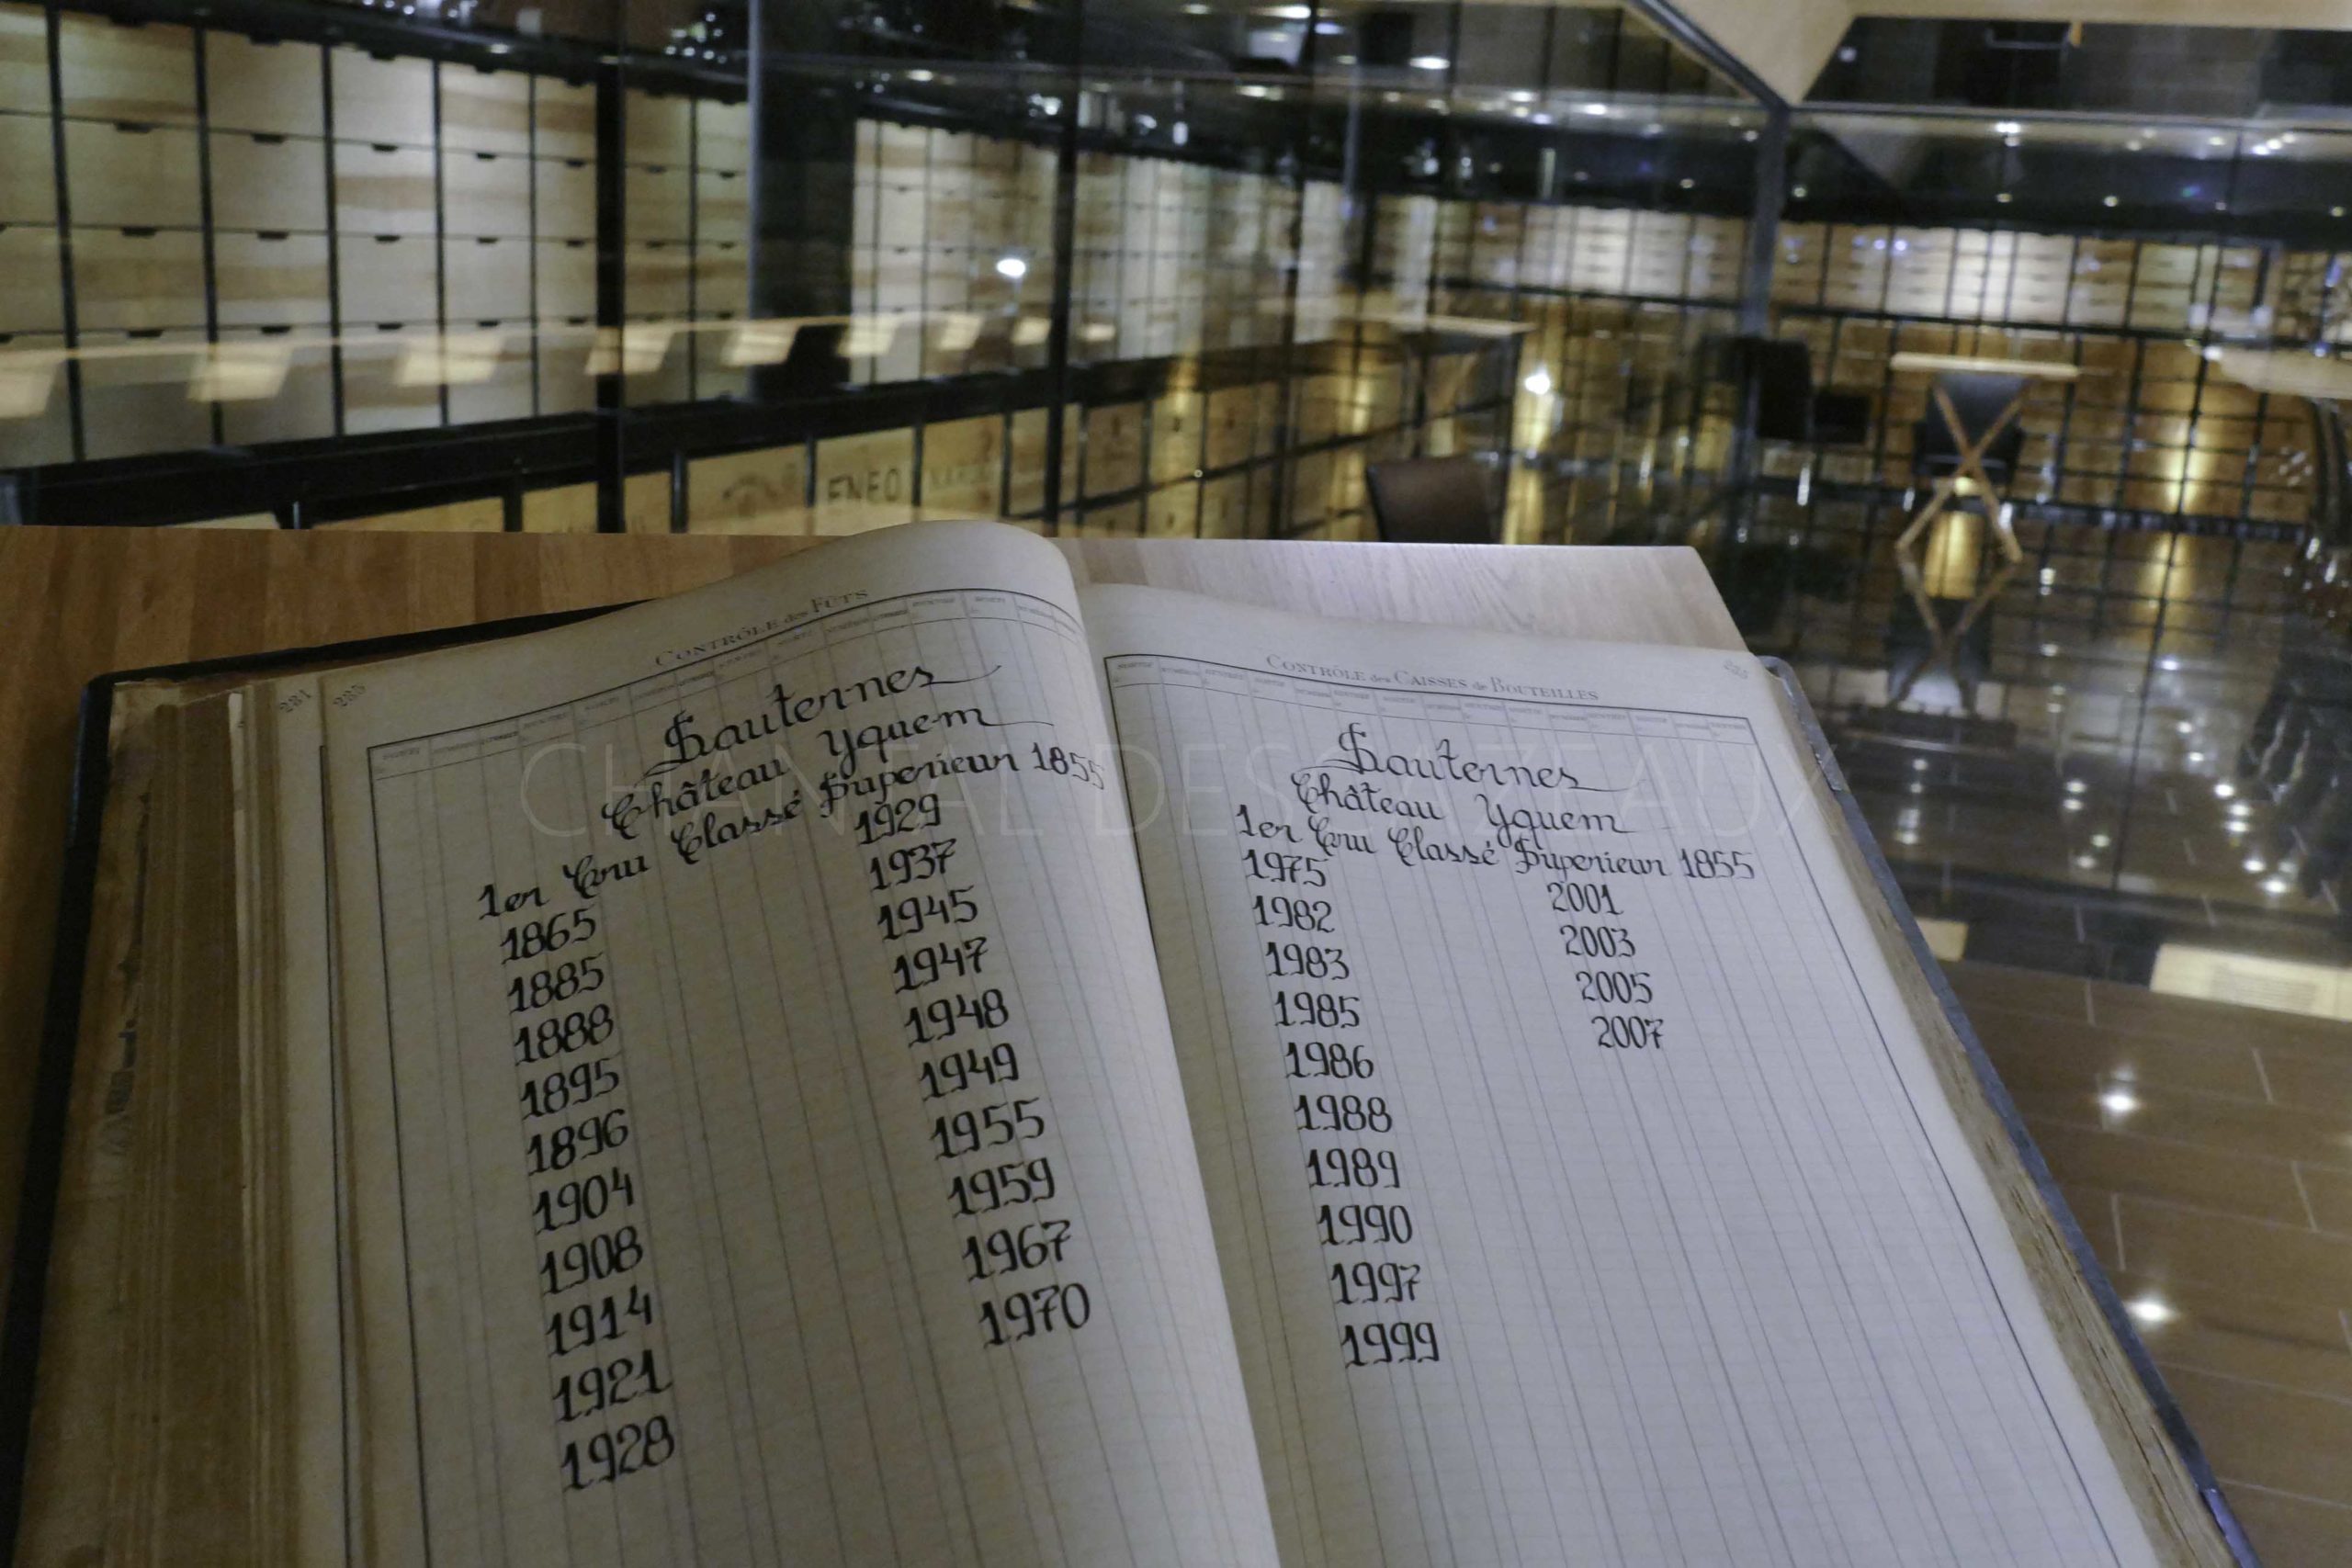 ENEO
281
285
CONTRÔLE des FÛTS
Sauternes
Château Yquem
1er Cru Classé Superieur 1855
1865
1885
1888
1895
1896
1904
1908
1914
1921
1928
1929
1937
1945
1947
1948
1949
1955
1959
1967
1970
CONTRÔLE des CAISSES de BOUTEILLES
Sauternes
Château Yquem
1er Cru Classé Superieur 1855
1975
1982
1983
1985
1986
1988
1989
1990
1997
1999
2001
2003
2005
2007
CHANTAL DESCAZEAUX